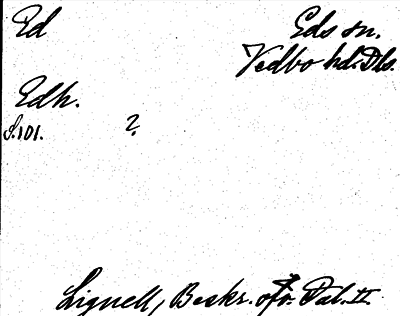 Ed
Eds sn.
Vedbo hd. Dls.
Edh.
S. 101.
?
Lignell, Beskr. öfv. Dal. II.